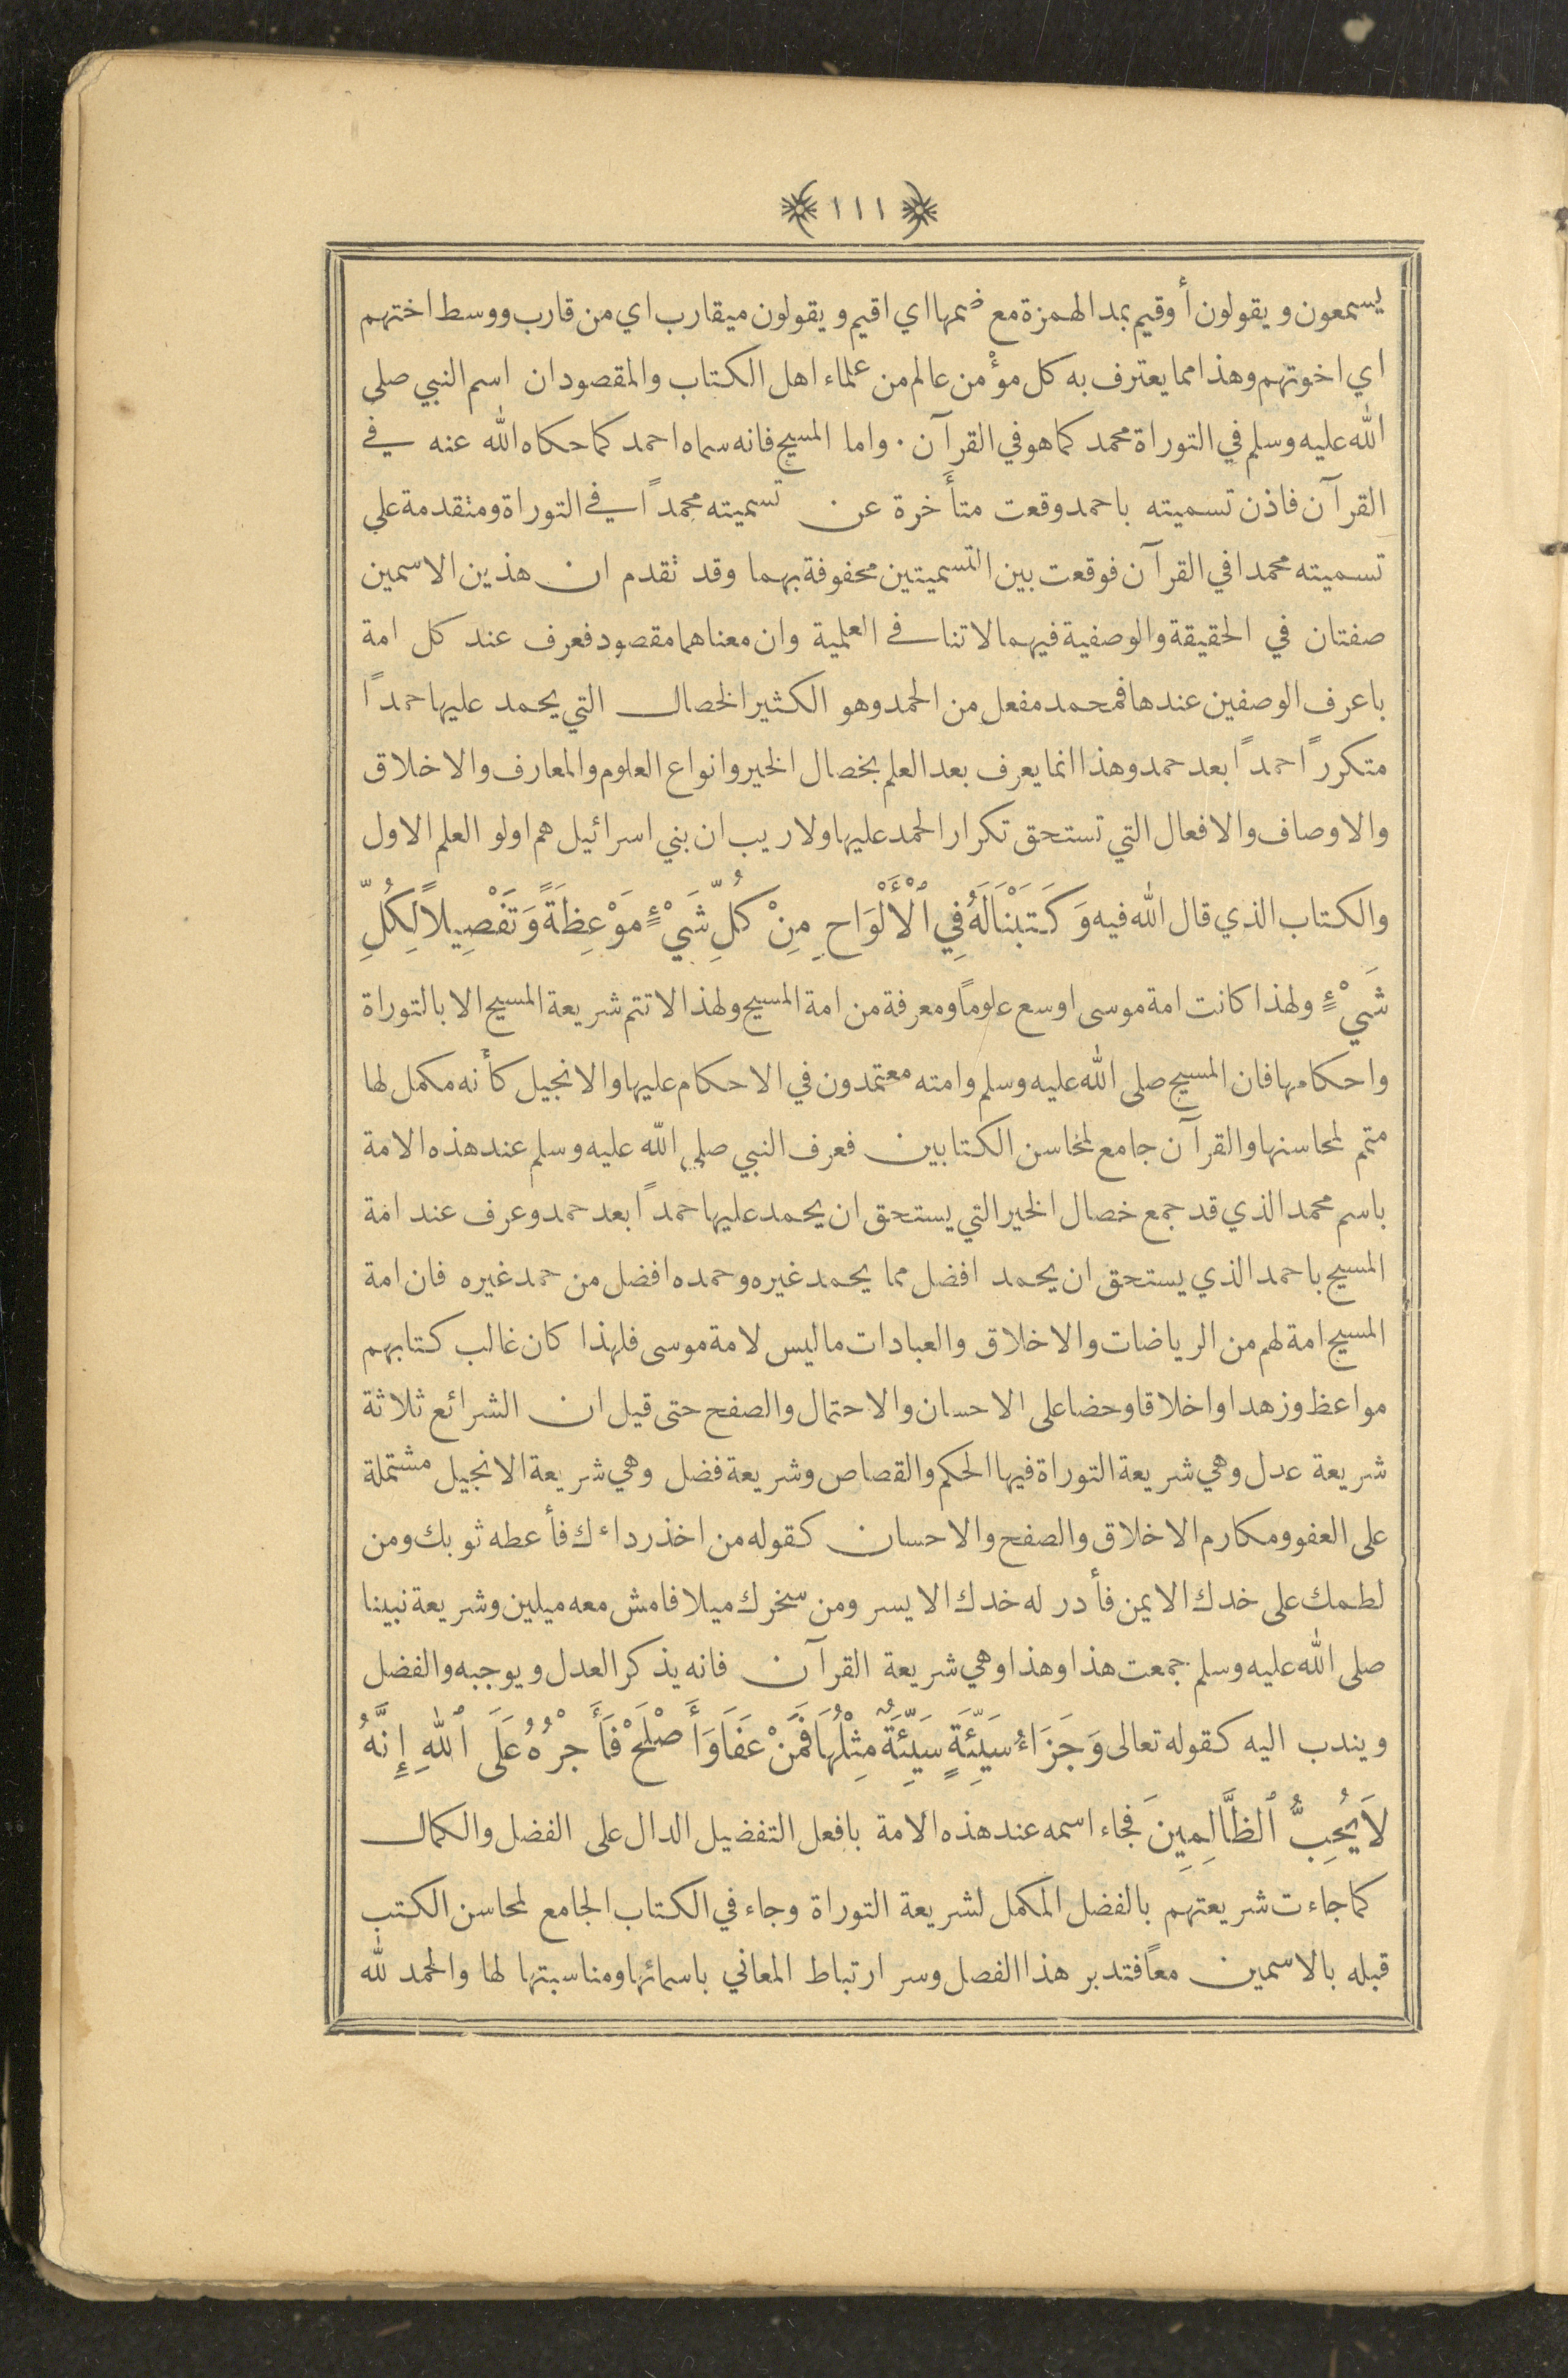 ١١١
يسمعون ويقولون أوقيم بمد الهمزة مع ضمها اي اقيم ويقولون ميقارب اي من قارب ووسط اختهم
اي اخوتهم وهذا مما يعترف به كل مؤمن عالم من علماء اهل الكتاب والمقصود ان اسم النبي صلى
الله عليه وسلم في التوراة محمد كما هو في القرآن. واما المسيح فانه سماه احمد كما حكاه الله عنه في
القرآن فاذن تسميته باحمد وقعت متأخرة عن تسميته محمداً في التوراة ومتقدمة على
تسميته محمدا في القرآن فوقعت بين التسميتين محفوفة بهما وقد تقدم ان هذين الاسمين
صفتان في الحقيقة والوصفية فيهما لا تنافي العلمية وان معناهما مقصود فعرف عند كل امة
باعرف الوصفين عندها فمحمد مفعل من الحمد وهو الكثير الخصال التي يحمد عليها حمداً
متكرراً حمداً بعد حمد وهذا انما يعرف بعد العلم بخصال الخير وانواع العلوم والمعارف والاخلاق
والاوصاف والافعال التي تستحق تكرار الحمد عليها ولا ريب ان بني اسرائيل هم اولو العلم الاول
والكتاب الذي قال الله فيه وَكَتَبْنَا لَهُ فِي ٱلْأَلْوَاحِ مِنْ كُلِّ شَيْءٍ مَوْعِظَةً وَتَفْصِيلاً لِكُلِّ
شَيْءٍ ولهذا كانت امة موسى اوسع علوماً ومعرفة من امة المسيح ولهذا لا تتم شريعة المسيح الا بالتوراة
واحكامها فان المسيح صلى الله عليه وسلم وامته معتمدون في الاحكام عليها والانجيل كأنه مكمل لها
متمم لمحاسنها والقرآن جامع لمحاسن الكتابين فعرف النبي صلى الله عليه وسلم عند هذه الامة
باسم محمد الذي قد جمع خصال الخير التي يستحق ان يحمد عليها حمداً بعد حمد وعرف عند امة
المسيح باحمد الذي يستحق ان يحمد افضل مما يحمد غيره وحمده افضل من حمد غيره فان امة
المسيح امة لهم من الرياضات والاخلاق والعبادات ما ليس لامة موسى فلهذا كان غالب كتابهم
مواعظ وزهدا واخلاقا وحضا على الاحسان والاحتمال والصفح حتى قيل ان الشرائع ثلاثة
شريعة عدل وهي شريعة التوراة فيها الحكم والقصاص وشريعة فضل وهي شريعة الانجيل مشتملة
على العفو ومكارم الاخلاق والصفح والاحسان كقوله من اخذ رداءك فأعطه ثوبك ومن
لطمك على خدك الايمن فأدر له خدك الايسر ومن سخرك ميلا فامش معه ميلين وشريعة نبينا
صلى الله عليه وسلم جمعت هذا وهذا وهي شريعة القرآن فانه يذكر العدل ويوجبه والفضل
ويندب اليه كقوله تعالى وَجَزَاءُ سَيِّئَةٍ سَيِّئَةٌ مِثْلُهَا فَمَنْ عَفَا وَأَصْلَحَ فَأَجْرُهُ عَلَى ٱللهِ إِنَّهُ
لاَ يُحِبُّ ٱلظَّالِمِينَ فجاء اسمه عند هذه الامة بافعل التفضيل الدال على الفضل والكمال
كما جاءت شريعتهم بالفضل المكمل لشريعة التوراة وجاء في الكتاب الجامع لمحاسن الكتب
قبله بالاسمين معاً فتدبر هذا الفصل وسر ارتباط المعاني باسمائها ومناسبتها لها والحمد لله